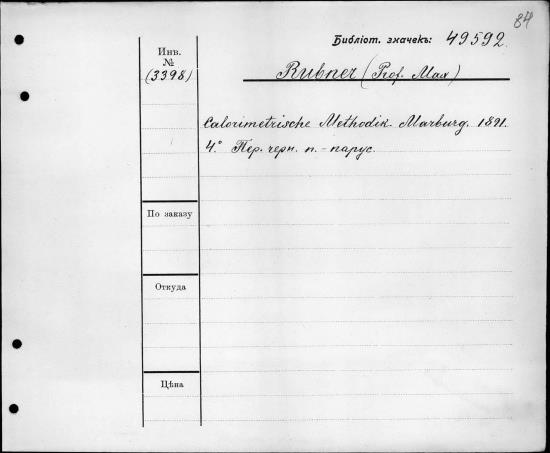 84
Библіот. значекъ: 49592.
Инв.
№
(3398)
Rubner (Prof. Max)
Calorimetrische Methodik. Marburg. 1891.
4° Пер. черн. п.-парус.
По заказу
Откуда
Цѣна